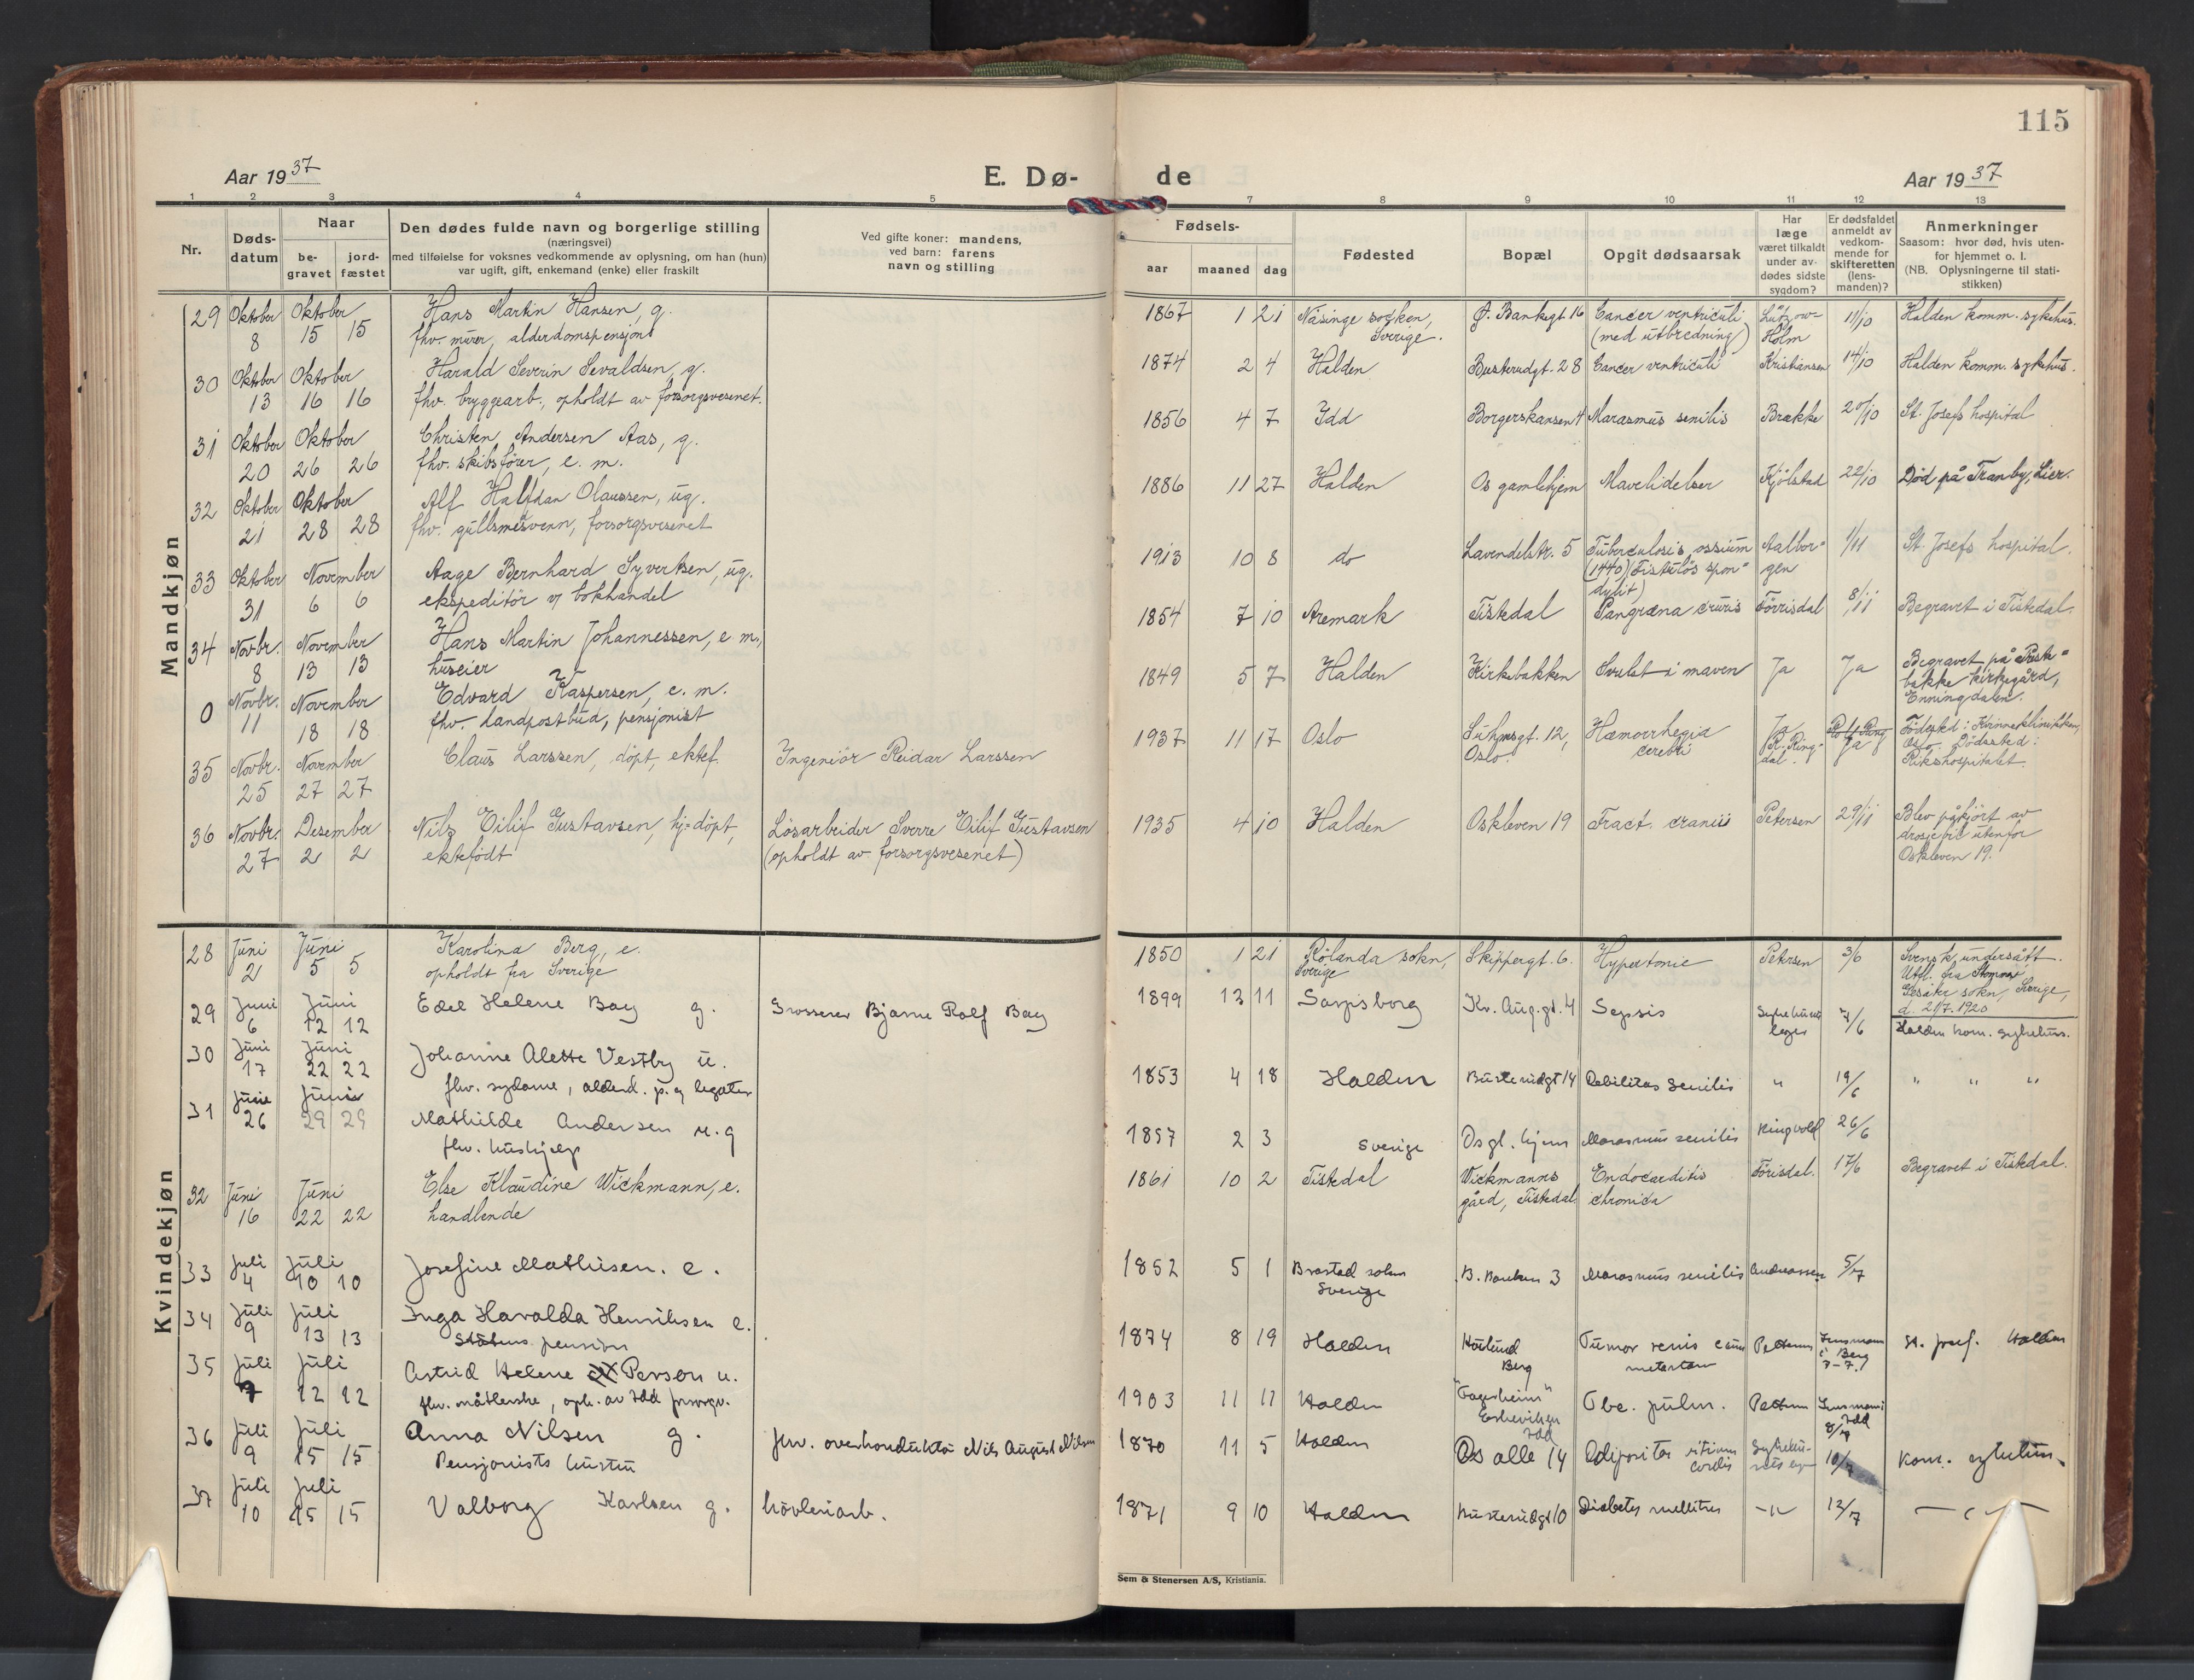 115
Aar 1937
E. Dø-
de
Aar 1937
1 2 3 4 5 7 8 9 10 11 12 13
Nr.
Døds-
datum
Naar
be-
gravet
jord-
fæstet
Den dødes fulde navn og borgerlige stilling
(næringsvei)
med tilføielse for voksnes vedkommende av oplysning, om han (hun)
var ugift, gift, enkemand (enke) eller fraskilt
Ved gifte koner: mandens,
ved barn: farens
navn og stilling
Fødsels-
aar maaned dag
Fødested
Bopæl
Opgit dødsaarsak
Har
læge
været tilkaldt
under av-
dødes sidste
sygdom?
Er dødsfaldet
anmeldt av
vedkom-
mende for
skifteretten
(lens-
manden)?
Anmerkninger
Saasom: hvor død, hvis uten-
for hjemmet o. l.
(NB. Oplysningerne til stati-
stikken)
Mandkjøn
29 Oktober Oktober Hans Martin Hansen, g. 1867 1 21 Näsinge socken, Ø. Bankegt 16 Cancer ventriculi Lützow- 11/10 Halden komm. sykehus.
8 15 15 fhv. murer, alderdomspensjonist Sverige. (med utbredning) Holm
30 Oktober Oktober Harald Severin Sevaldsen, g. 1874 2 4 Halden Busterudgt. 28 Cancer ventriculi Kristiansen 14/10 Halden komm. sykehus.
13 16 16 fhv. bryggearb., opholdt av forsorgsvesenet.
31 Oktober Oktober Christen Andersen Aas, g. 1856 4 7 Idd Borgerskansen 4 Marasmus senilis Brække 20/10 St. Josefs hospital
20 26 26 fhv. skibsfører, e. m.
32 Oktober Oktober Alf Halfdan Olaussen, ug. 1886 11 27 Halden Os gamlehjem Mavelidelser Kjölstad 22/10 Død på Tranby, Lier.
21 28 28 fhv. gullsmedsvenn, forsorgsvesenet
33 Oktober November Aage Bernhard Syvertsen, ug. 1913 10 8 do Lavendelstr. 5 Tuberculosis ossium Aalbor- 1/11 St. Josefs hospital.
31 6 6 ekspeditör v/ bokhandel (1440) (Fistuløs spon- gen
dylit)
34 Novbr. November Hans Martin Johannessen, e. m., 1854 7 10 Aremark Tistedal Gangræna cruris Förrisdal 8/11 Begravet i Tistedal.
8 13 13 huseier
0 Novbr. November Edvard Kaspersen, e. m. 1849 5 7 Halden Kirkebakken Svulst i maven Ja Ja Begravet på Prest-
11 18 18 fhv. landpostbud, pensjonist bakke kirkegård,
Enningdalen.
35 Novbr. November Claus Larssen, döpt, ektef. Ingeniör Reidar Larssen 1937 11 17 Oslo Suhmsgt. 12, Hæmorrhegia Ja Ja Fødested: Kvinneklinikken,
25 27 27 Oslo. cerebri R. Ring- Oslo. Dödssted:
dal. Rikshospitalet.
36 Novbr. Desember Nils Eilif Gustavsen, hj-döpt, Lösarbeider Sverre Eilif Gustavsen 1935 4 10 Halden Oskleven 19 Fract. cranii Petersen 29/11 Blev påkjört av
27 2 2 ektefödt (opholdt av forsorgsvesenet) drosjebil utenfor
Oskleven 19.
Kvindekjøn
28 Juni Juni Karolina Berg, e. 1850 1 21 Rölanda sokn, Skippergt. 6. Hypertonie Petersen 3/6 Svensk undersått.
2 5 5 opholdt fra Sverige Sverige Utfl. fra
sokn, Sverige,
d. 21/7. 1920
29 Juni Juni Edel Helene Bay g. Grosserer Bjarne Rolf Bay 1899 12 11 Sarpsborg Kr. Aug. gt. 4 Sepsis Sykehusets 7/6 Halden kom. sykehus.
6 12 12 leger
30 Juni Juni Johanne Alette Vestby u. 1853 4 18 Halden Busterudgt 14 Debilitas senilis " 19/6 " " "
17 22 22 fhv. sydame, alderd. p. og legater
31 Juni Juni Mathilde Andersen u. g 1857 2 3 Sverige Os gl. hjem Marasmus senilis Ringvold 26/6
26 29 29 fhv. hushjelp
32 Juni Juni Else Klaudine Wickmann, e. 1861 10 2 Tistedal Wickmanns Endocarditis Förisdal. 17/6 Begravet i Tistedal.
16 22 22 handlende gård, Tistedal chronica
33 Juli Juli Josefine Mathisen. e. 1852 5 1 Brastad sokn B. Banken 3 Marasmus senilis Andreassen 5/7
4 10 10 Sverige
34 Juli Juli Inga Haralda Henriksen e. 1874 8 19 Halden Berg Tumor renis cum Petersen Lensmann St. Josef. Halden
9 13 13 Statens pensjon metastase i Berg
7-7.
35 Juli Juli Astrid Helene Person u. 1903 11 11 Halden "Fagerheim" Tbc. pulm. Petersen Lensmann i
7 12 12 fhv. måtlerske, oph. av Idd forsorgv. Eskeviken Idd
Idd 8/7
36 Juli Juli Anna Nilsen g. fhv. overkonduktør Nils August Nilsen 1870 11 5 Halden Os alle 14 Adipositas vitium Sykehu- 10/7 Kom. sykehus.
9 15 15 Pensjonists hustru cordis
37 Juli Juli Valborg Karlsen g. høvleriarb. 1871 9 10 Halden Busterudgt 10 Diabetes mellitus -"- 12/7 - " -
10 15 15
Sem & Stenersen A/S, Kristiania.